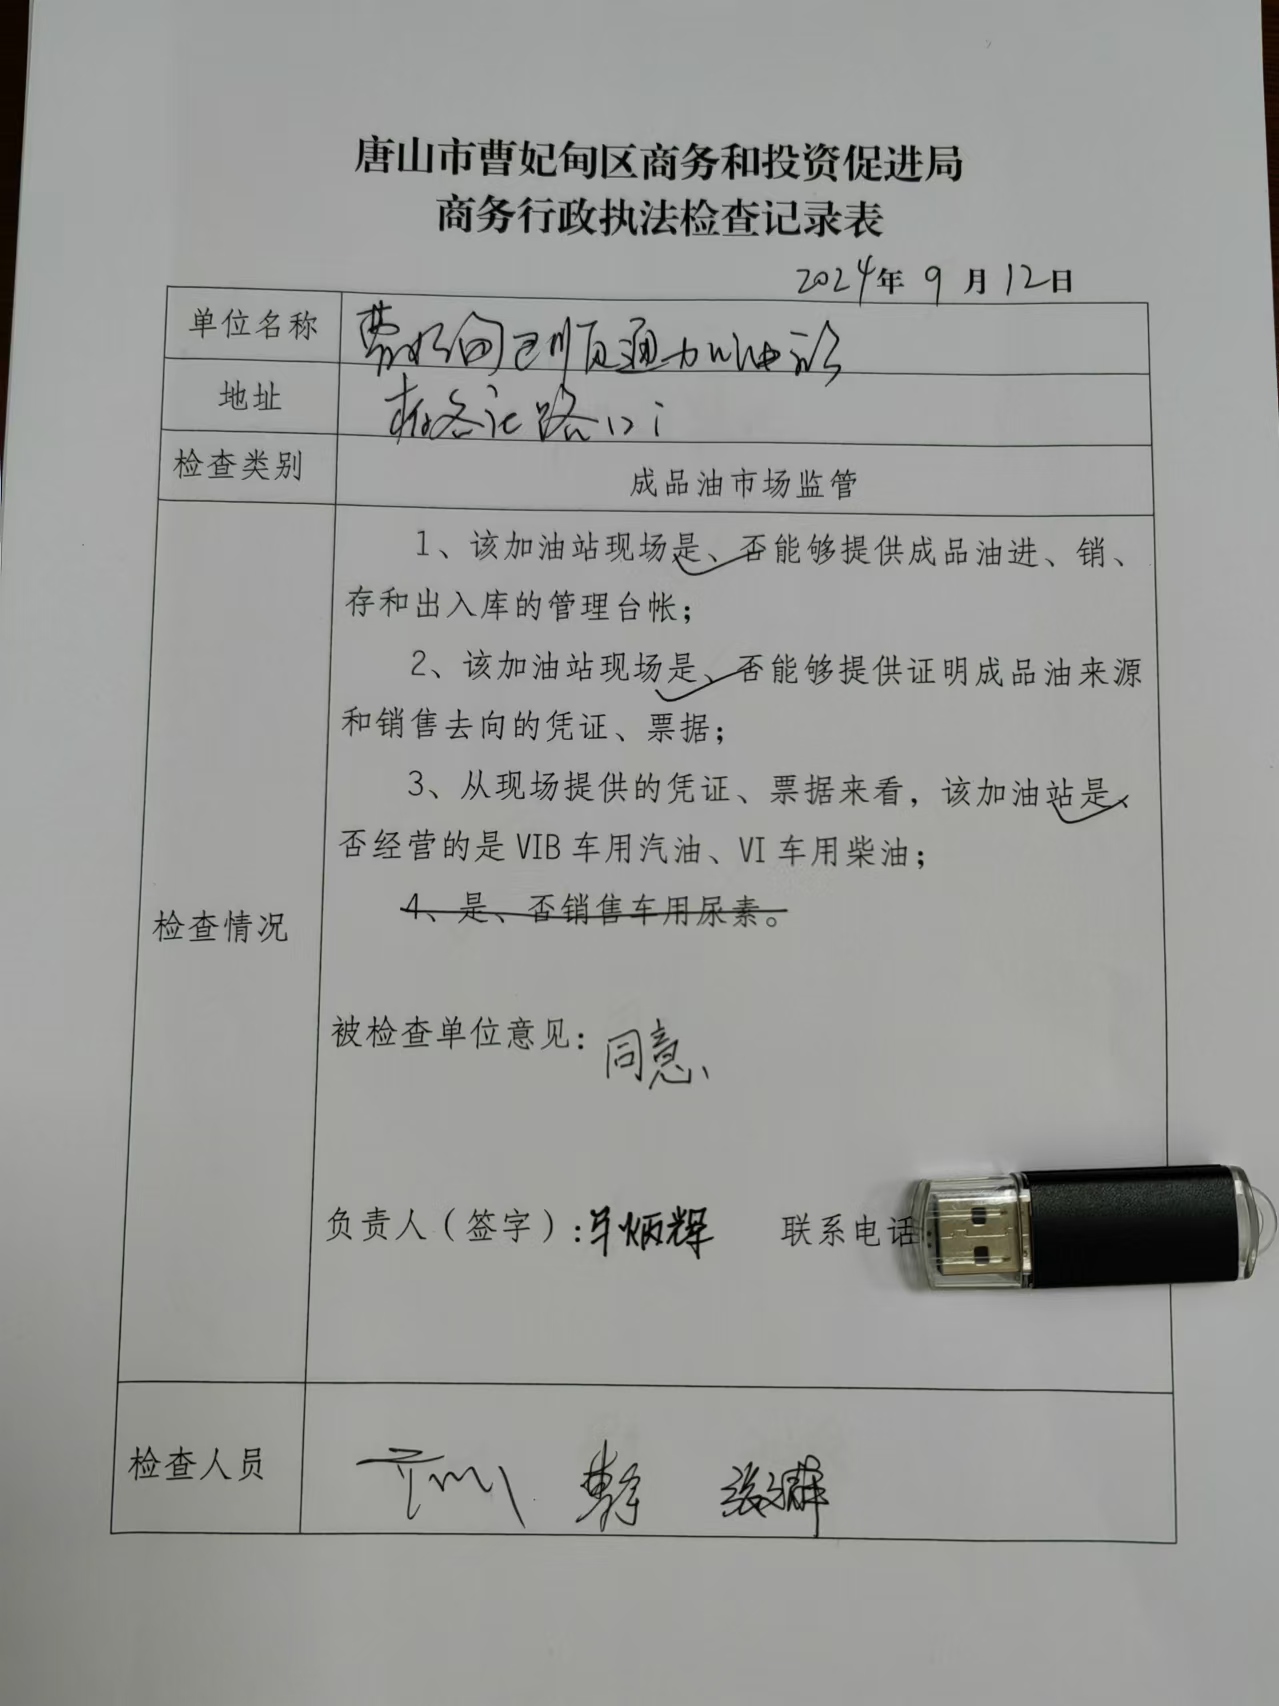 唐山市曹妃甸区商务和投资促进局
商务行政执法检查记录表
2024年9月12日
单位名称 曹妃甸区顺通加油站
地址 路口
检查类别 成品油市场监管
1、该加油站现场是、否能够提供成品油进、销、
存和出入库的管理台帐；
2、该加油站现场是、否能够提供证明成品油来源
和销售去向的凭证、票据；
3、从现场提供的凭证、票据来看，该加油站是、
否经营的是 VIB 车用汽油、VI 车用柴油；
4、是、否销售车用尿素。
检查情况
被检查单位意见：同意、
负责人（签字）：炳辉 联系电话
检查人员